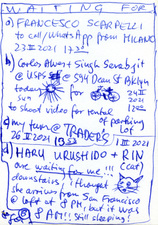 WAITING FOR
a) FRANCESCO SCARPELLI
to call/WhatsApp from MILANO
23 II 2021
b) Carlos Alvest Singh Sarabjit
@ USPS @ 594 Dean St Bklyn
today
sun for
24 II
2021
to shoot video for rental
of parking
lot
c) my turn @ TRADER'S
26 II 2021
1 III 2021
d) HARU URUSHIDO + RIN
(cat)
are waiting for me !!!
downstairs, i thought
she arrives from San Francisco
@ loft @ 8 PM, but it was
@ 8 AM!! Still sleeping!